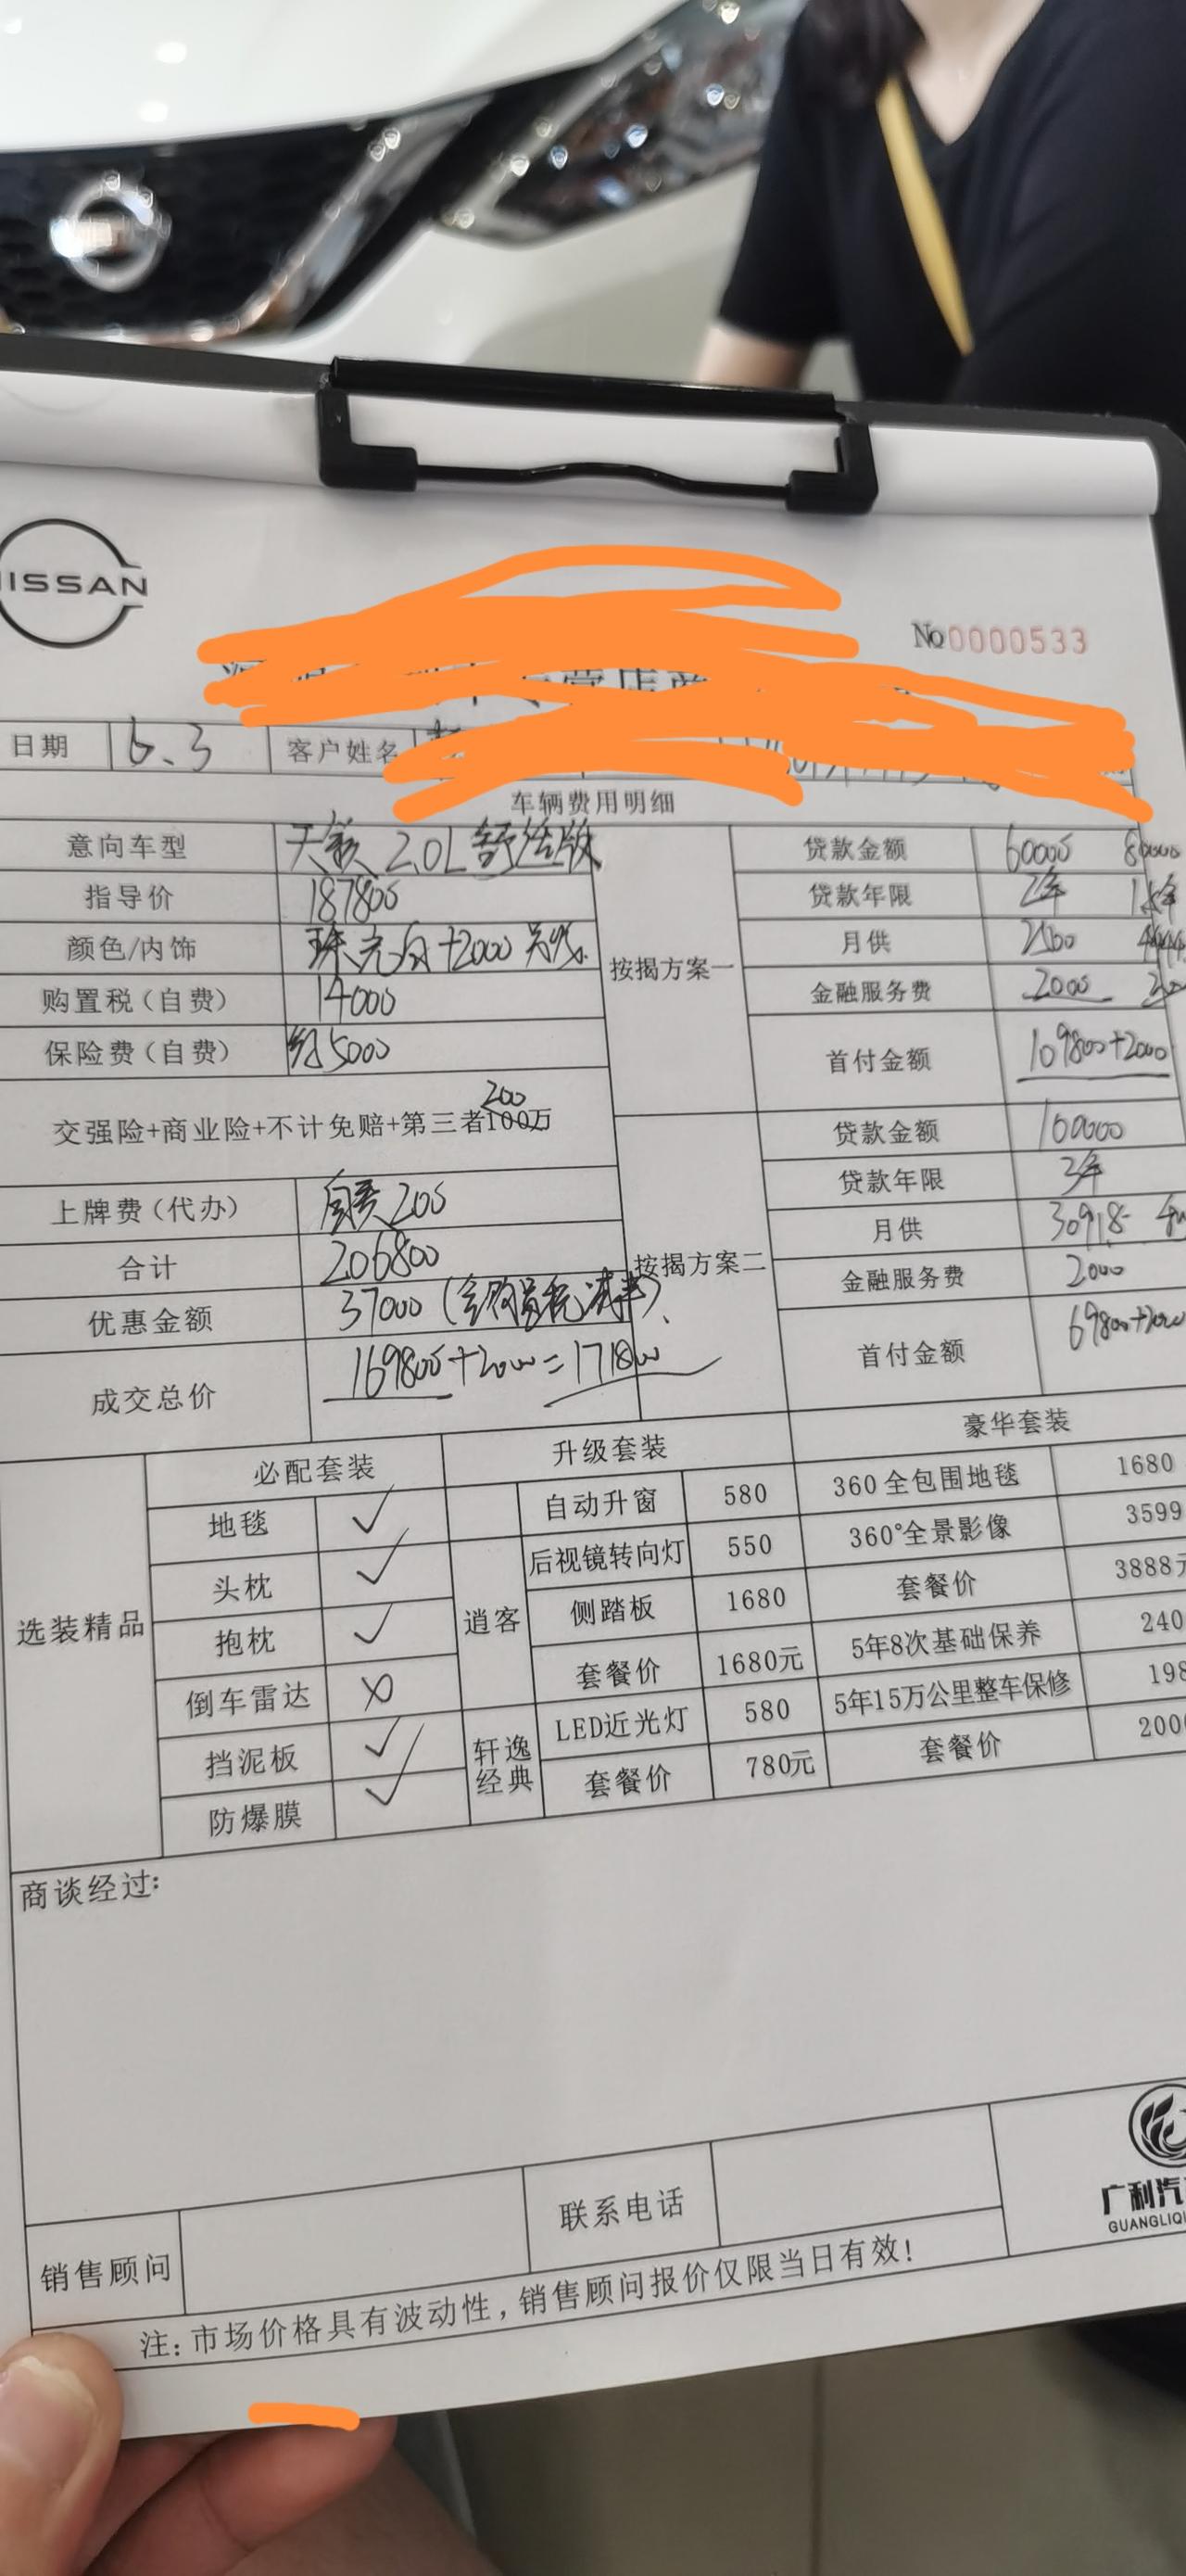 NISSAN
No 0000533
日期 6.3 客户姓名
车辆费用明细
意向车型 天籁 2.0L 舒适版
指导价 187800
颜色/内饰 珠光白+2000
购置税(自费) 14000
保险费(自费) 约5000
200
交强险+商业险+不计免赔+第三者100万
上牌费(代办) 自费 200
合计 206800
优惠金额 37000 (含购置税减半)、
成交总价 169800+2000=171800
按揭方案一
贷款金额 60000 80000
贷款年限 2年
月供 2500
金融服务费 2000
首付金额 109800+2000
按揭方案二
贷款金额 100000
贷款年限 3年
月供
金融服务费 2000
首付金额 69800+2000
选装精品
必配套装 升级套装 豪华套装
地毯 ✓ 自动升窗 580 360全包围地毯 1680
头枕 ✓ 后视镜转向灯 550 360°全景影像 3599
抱枕 ✓ 逍客 侧踏板 1680 套餐价 3888元
倒车雷达 X 套餐价 1680元 5年8次基础保养 240
挡泥板 ✓ 轩逸经典 LED近光灯 580 5年15万公里整车保修 198
防爆膜 ✓ 套餐价 780元 套餐价 200
商谈经过:
销售顾问 联系电话
广利汽
GUANGLIQI
注:市场价格具有波动性,销售顾问报价仅限当日有效!